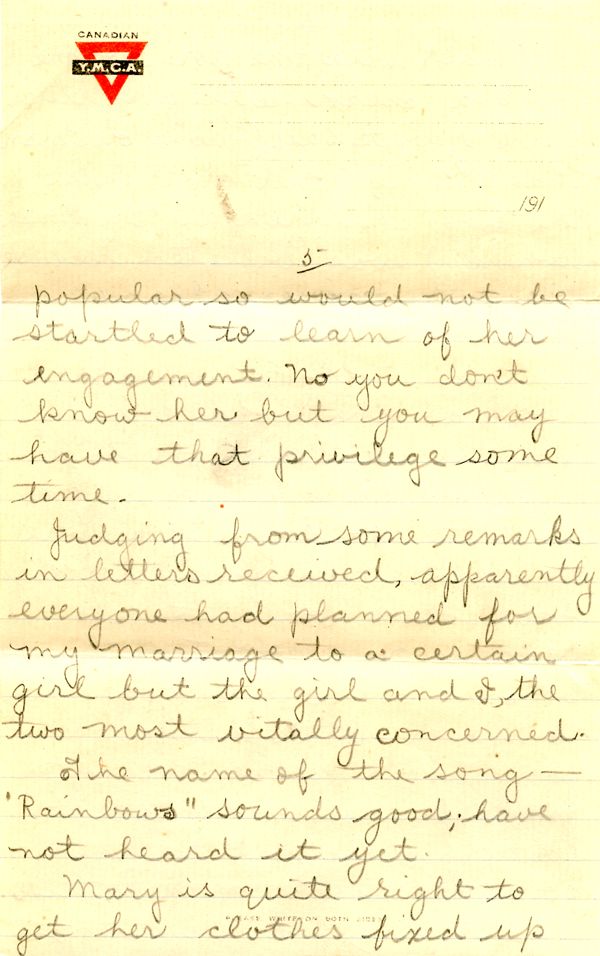 CANADIAN
Y.M.C.A.
191
5
popular so would not be
startled to learn of her
engagement. No you don't
know her but you may
have that privilege some
time.
Judging from some remarks
in letters received, apparently
everyone had planned for
my marriage to a certain
girl but the girl and I, the
two most vitally concerned.
The name of the song —
"Rainbows" sounds good; have
not heard it yet.
Mary is quite right to
PLEASE WRITE ON BOTH SIDES
get her clothes fixed up